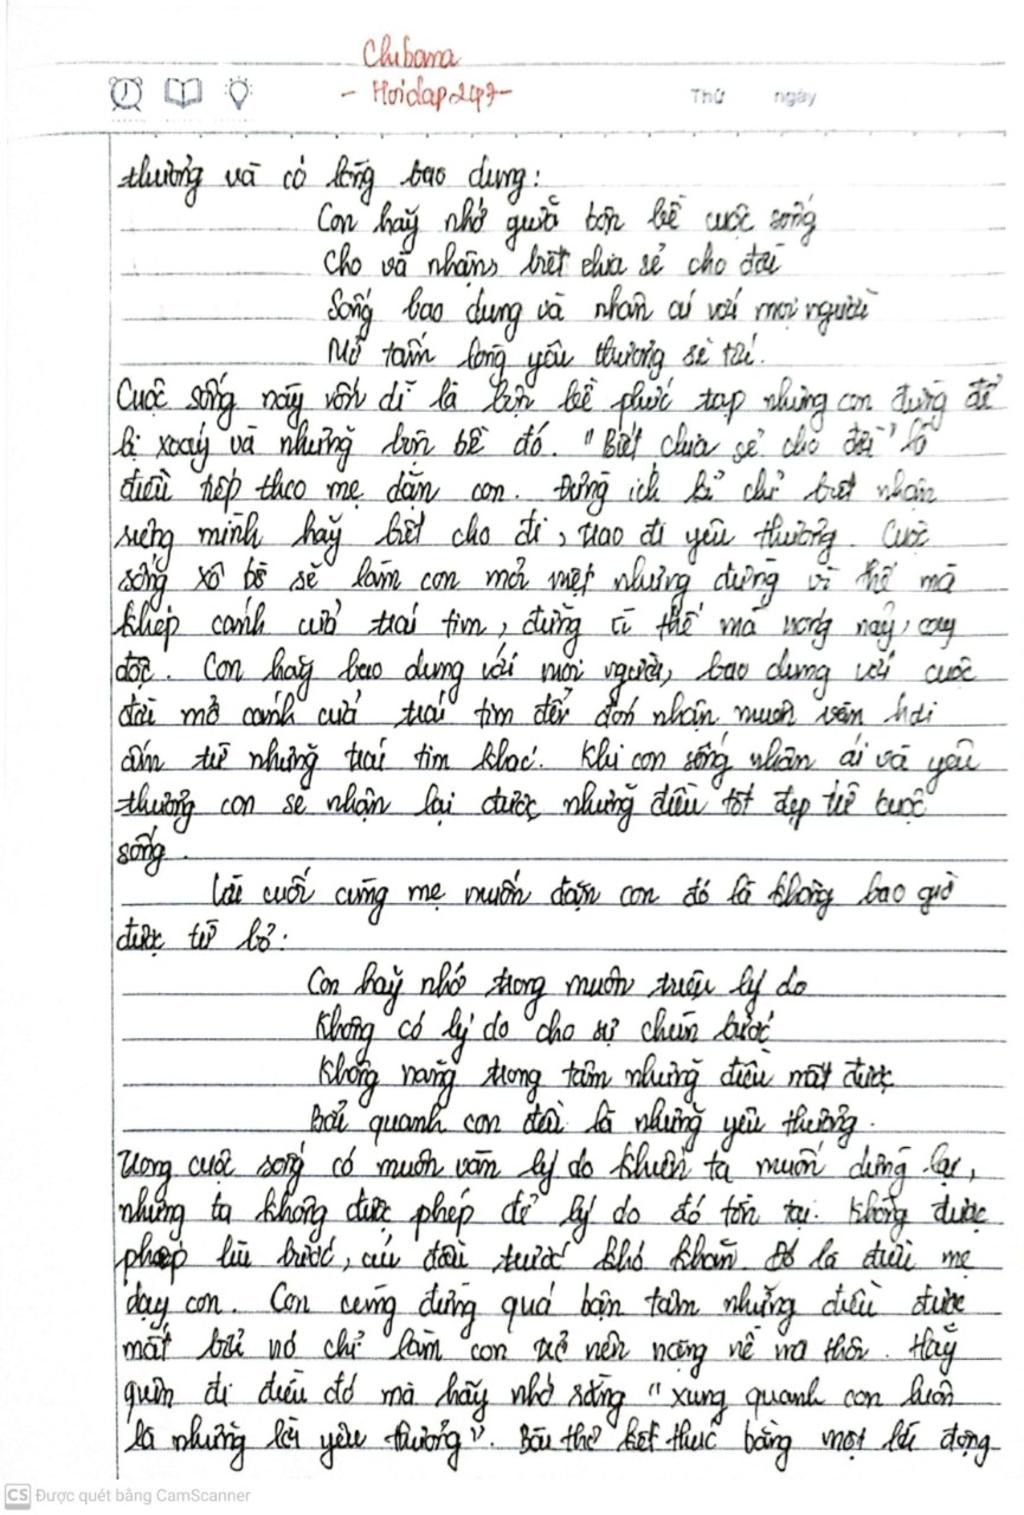 Chibana
- Hoidap247-
Thứ ngày
thương và có lòng bao dung:
Con hãy nhớ giữa bộn bề cuộc sống
Cho và nhận, biết chia sẻ cho đời
Sống bao dung và nhân ái với mọi người
Mở tấm lòng yêu thương sẽ tới.
Cuộc sống này vốn dĩ là bộn bề phức tạp nhưng con đừng để
bị xoáy và những bộn bề đó. "Biết chia sẻ cho đời" là
điều tiếp theo mẹ dặn con. Đừng ích kỉ chỉ biết nhận
riêng mình hãy biết cho đi, trao đi yêu thương. Cuộc
sống xô bồ sẽ làm con mỏi mệt nhưng đừng vì thế mà
khép cánh cửa trái tim, đừng vì thế mà nóng nảy, cay
độc. Con hãy bao dung với mọi người, bao dung với cuộc
đời mở cánh cửa trái tim để đón nhận muôn vàn hơi
ấm từ những trái tim khác. Khi con sống nhân ái và yêu
thương con sẽ nhận lại được những điều tốt đẹp từ cuộc
sống.
Lời cuối cùng mẹ muốn dặn con đó là không bao giờ
được từ bỏ:
Con hãy nhớ trong muôn triệu lý do
Không có lý do cho sự chùn bước
Không nặng trong tâm những điều mất được
Bởi quanh con đều là những yêu thương.
Trong cuộc sống có muôn vàn lý do khiến ta muốn dừng lại,
nhưng ta không được phép để lý do đó tồn tại. Không được
phép lùi bước, cúi đầu trước khó khăn. Đó là điều mẹ
dạy con. Con cũng đừng quá bận tâm những điều được
mất bởi nó chỉ làm con trở nên nặng nề mà thôi. Hãy
quên đi điều đó mà hãy nhớ rằng "xung quanh con luôn
là những lời yêu thương". Bài thơ kết thúc bằng một lời động
CS Được quét bằng CamScanner